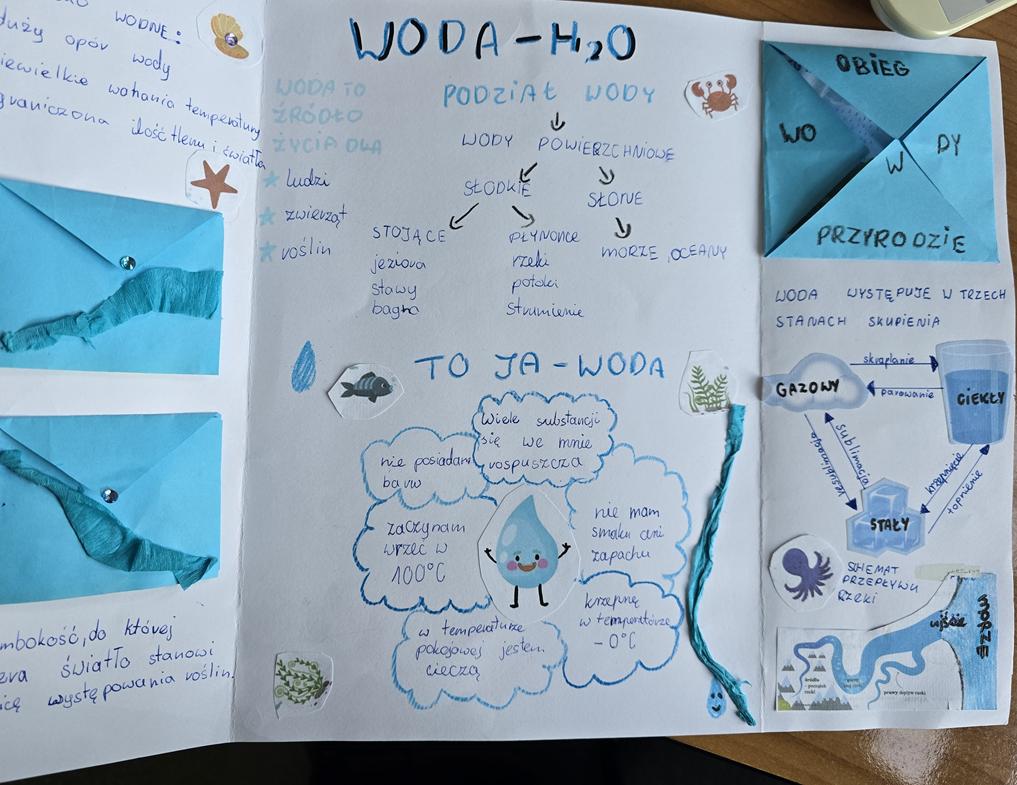 WODNE:
duży opór wody
niewielkie wahania temperatury
ograniczona ilość tlenu i światła
do której
światło stanowi
występowania roślin.
WODA - H₂O
WODA TO
ŹRÓDŁO
ŻYCIA DLA
ludzi
zwierząt
roślin
PODZIAŁ WODY
WODY POWIERZCHNIOWE
SŁODKIE
SŁONE
STOJĄCE
jeziora
stawy
bagna
PŁYNĄCE
rzeki
potoki
strumienie
MORZE, OCEANY
TO JA - WODA
Wiele substancji
się we mnie
rozpuszcza
nie posiadam
barw
zaczynam
wrzeć w
100°C
nie mam
smaku ani
zapachu
krzepnę
w temperaturze
- 0°C
w temperaturze
pokojowej jestem
cieczą
OBIEG
WO
DY
W
PRZYRODZIE
WODA WYSTĘPUJE W TRZECH
STANACH SKUPIENIA
GAZOWY
skraplanie
parowanie
CIEKŁY
resublimacja
sublimacja
krzepnięcie
topnienie
STAŁY
SHEMAT
PRZEPŁYWU
RZEKI
ujście
MORZE
źródło
- początek
rzeki
prawy dopływ rzeki